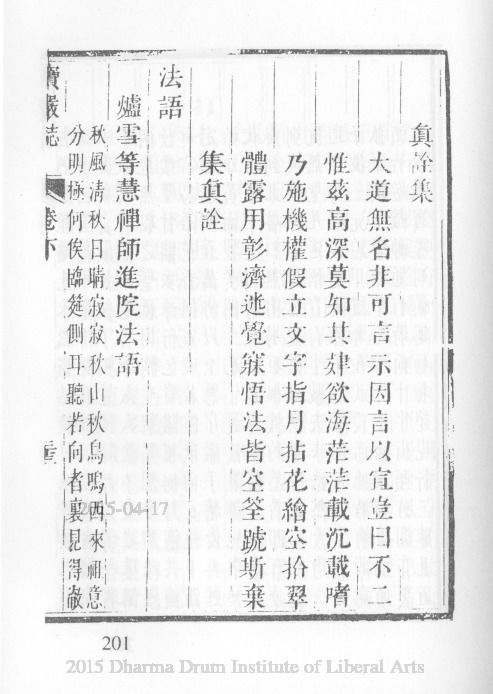 真詮集
大道無名非可言示因言以宣豈曰不二
惟茲高深莫知其肆欲海茫茫載沉載嗜
乃施機權假立文字指月拈花繪空拾翠
體露用彰濟迷覺寐悟法皆空筌蹏斯棄
集真詮
法語
爐雪等慧禪師進院法語
秋風清秋騎寂寂秋山秋鳥鳴西來祖意
分明極何俟臨筵側耳聽若向者裏見得敵
寶嚴誌
卷下
2015-04-17
201
2015 Dharma Drum Institute of Liberal Arts